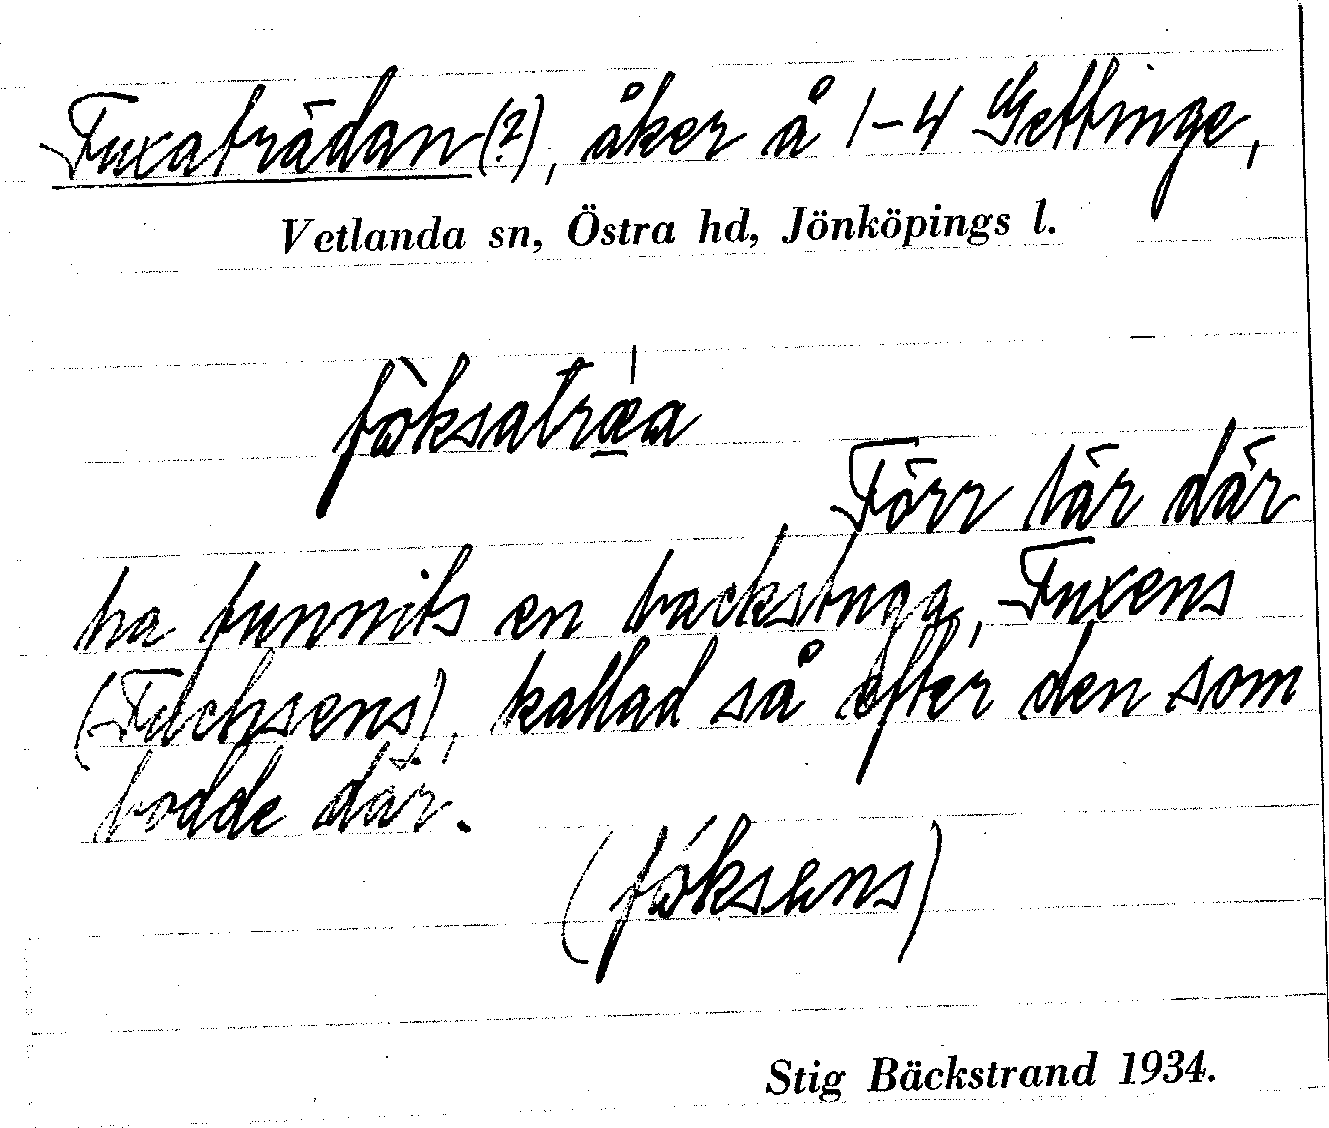 Fuxaträdan (?), åker å 1-4 Gettinge,
Vetlanda sn, Östra hd, Jönköpings l.
fɷ̀ksatræ̠̍a
Förr lär där
ha funnits en backstuga, Fuxens
(Fuchsens), kallad så efter den som
bodde där.
(fɷ́ksens)
Stig Bäckstrand 1934.